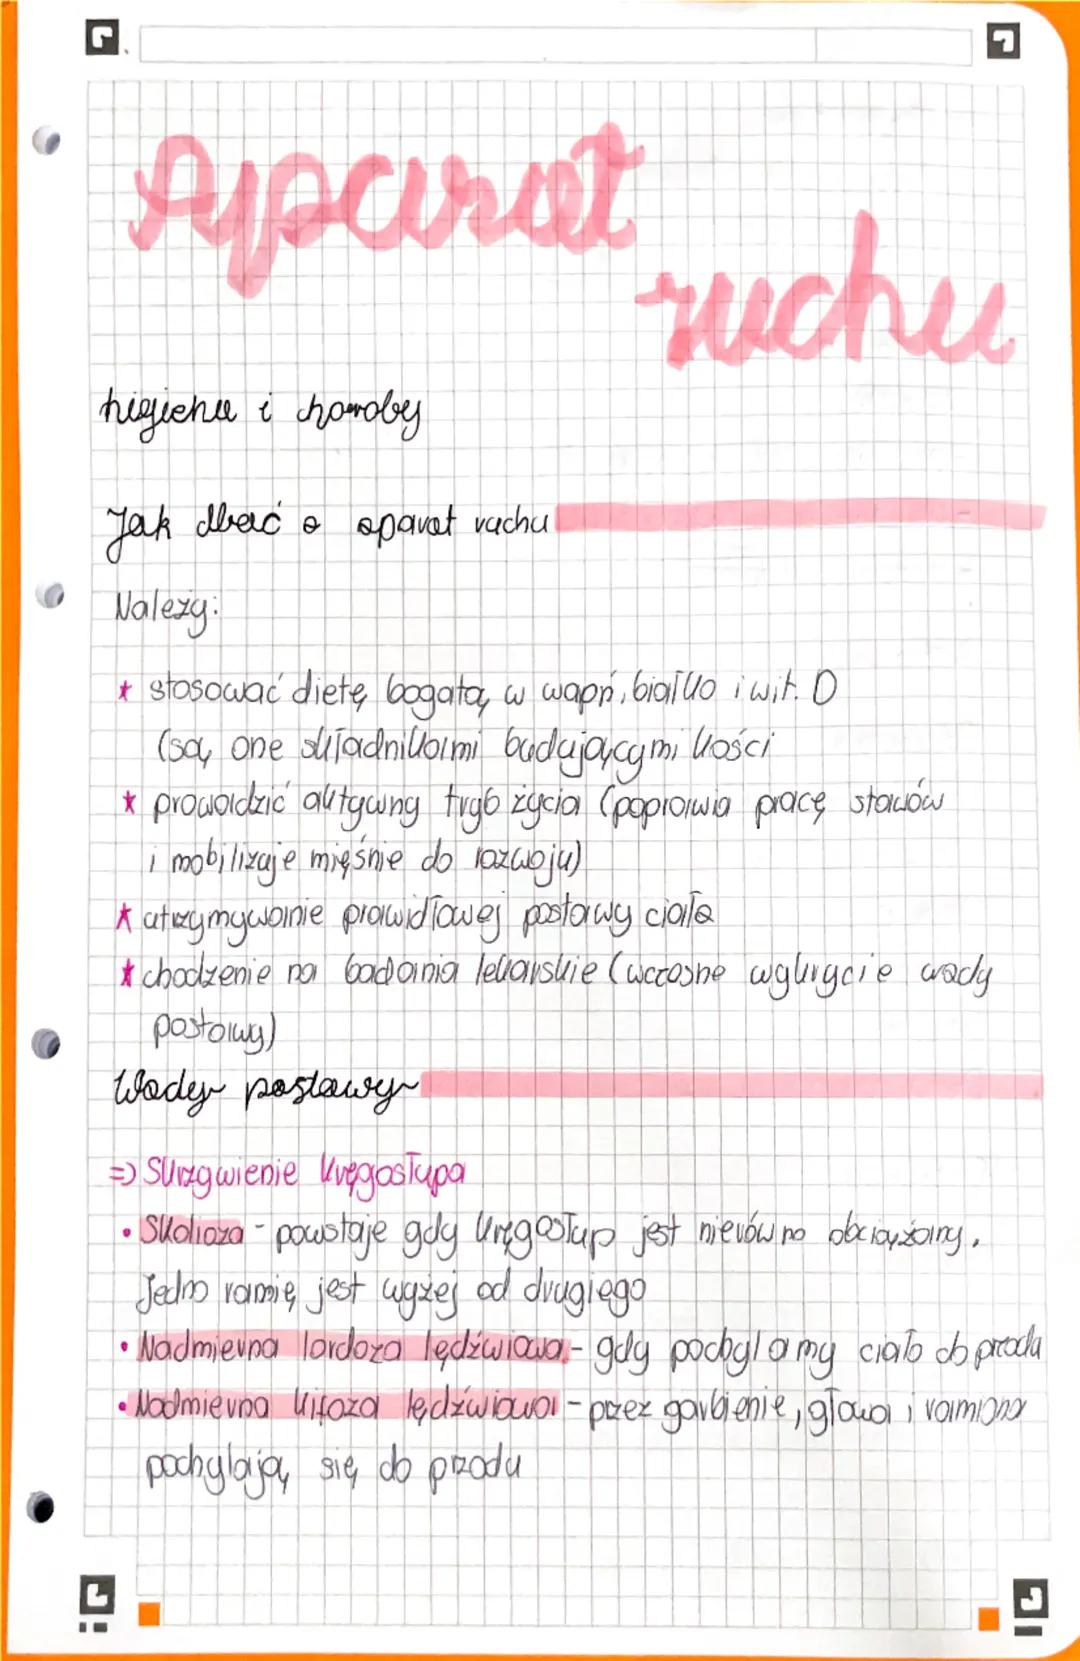 Aparat
ruchu
higiena i choroby
Jak dbać o aparat ruchu
Należy:
* stosować dietę bogatą w wapń, białko i wit. D
(są one składnikami budującymi kości
* prowadzić aktywny tryb życia (poprawia pracę stawów
i mobilizuje mięśnie do rozwoju)
* utrzymywanie prawidłowej postawy ciała
* chodzenie na badania lekarskie (wczosne wykrycie wady
postawy)
Wady postawy
=> Skrzywienie kręgosłupa
• Skolioza - powstaje gdy kręgosłup jest nierówno obciążany.
Jedno ramię jest wyżej od drugiego
• Nadmierna lordoza lędźwiowa - gdy pochylamy ciało do przodu
• Nadmierna kifoza lędźwiowa - przez garbienie, głowa i ramiona
pochylają się do przodu